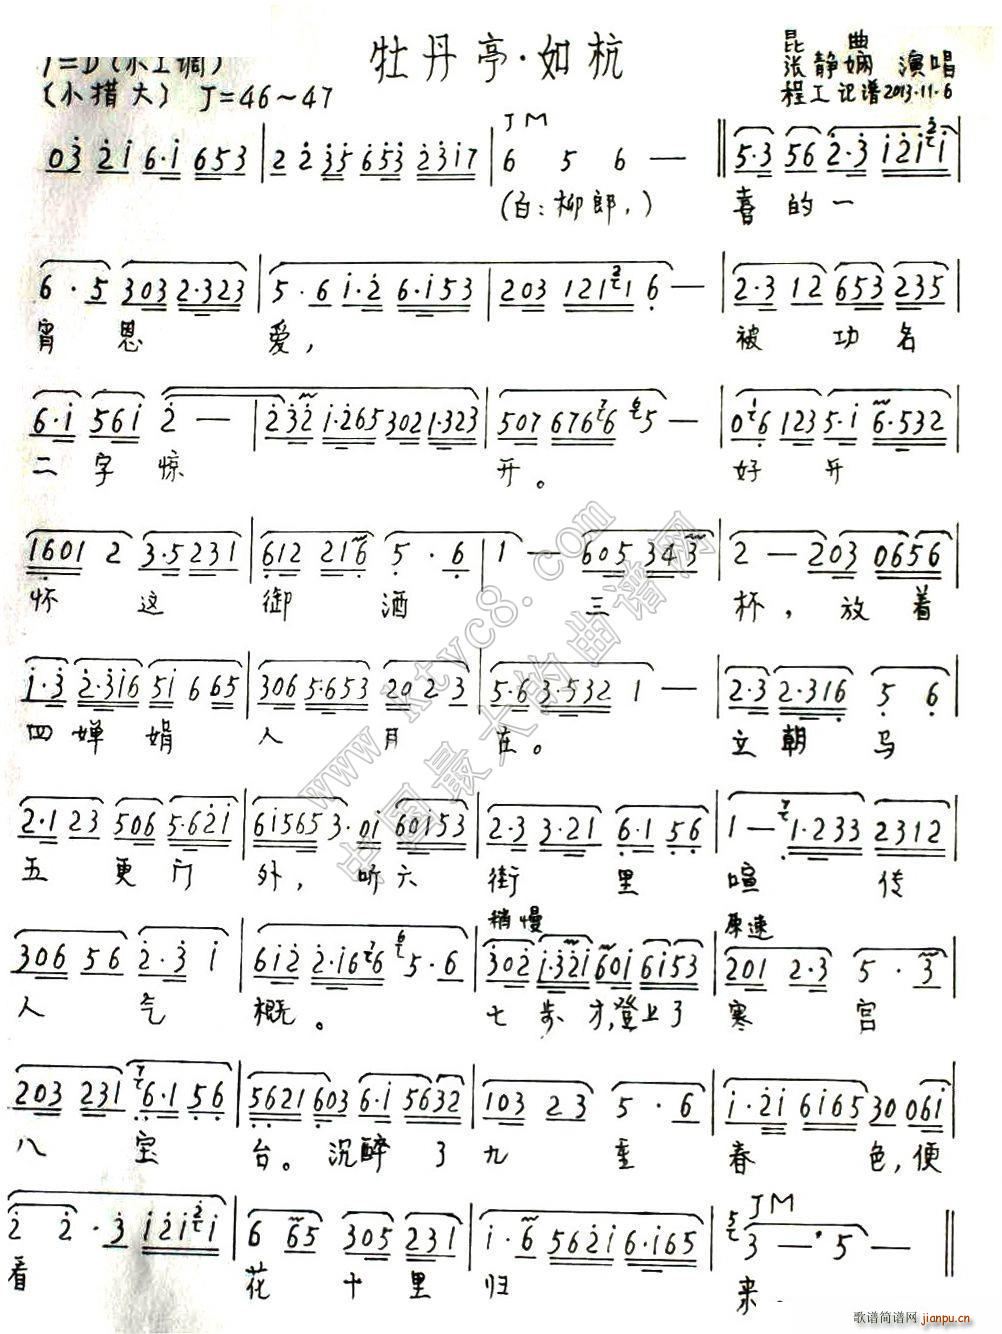 牡丹亭·如杭
昆曲
张静娴 演唱
程工记谱2013.11.6
1=D(小工调)
(小措大) J=46~47
03 21 6·1 653 | 2 2 35 653 2317 | JM 6 5 6 — ‖ 5·3 56 2·3 12121
(白:柳郎,) 喜的一
6·5 303 2·323 | 5·6 1·2 6·153 | 203 12121 6 — | 2·3 12 653 235
宵恩爱, 被功名
6·1 561 2 — | 232 1·265 3021·323 | 507 67676 65 — | 016 123 5·1 6·532
二字惊开。好开
1601 2 3·5231 | 612 216 5·6 | 1 — 605 343 | 2 — 203 0656
怀这御酒三杯,放着
1·3 2·316 51 6 65 | 306 5·653 2023 | 5·63·532 1 — | 2·3 2·316 5 6
四婵娟人月在。立朝马
2·1 23 506 5·621 | 615653·01 60153 | 2·3 3·21 6·1 56 | 1 — 1·233 2312
五更门外,听六街里喧传
306 56 2·3 1 | 612 2·1676 65·6 | 稍慢 302 1·321 601 6153 | 原速 201 2·3 5·3
人气概。七步才,登上了寒宫
203 231 76·1 56 | 5621603 6·1 5632 | 103 23 5·6 | 1·21 6165 30 061
八宝台。沉醉了九重春色,便
2 2·3 12121 | 6 65 305 231 | 1·6 5621 6·165 | JM 3 — 5 — ‖
看花十里归来.
www.ktyc8.com
中国最大的曲谱网
歌谱简谱网 jianpu.cn